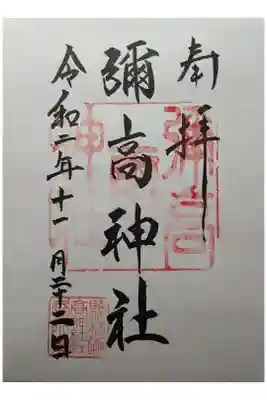 奉拝
彌高神社
令和二年十一月二十二日